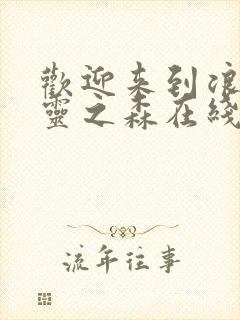 歡迎来到浪
靈之森在綫
流年往事